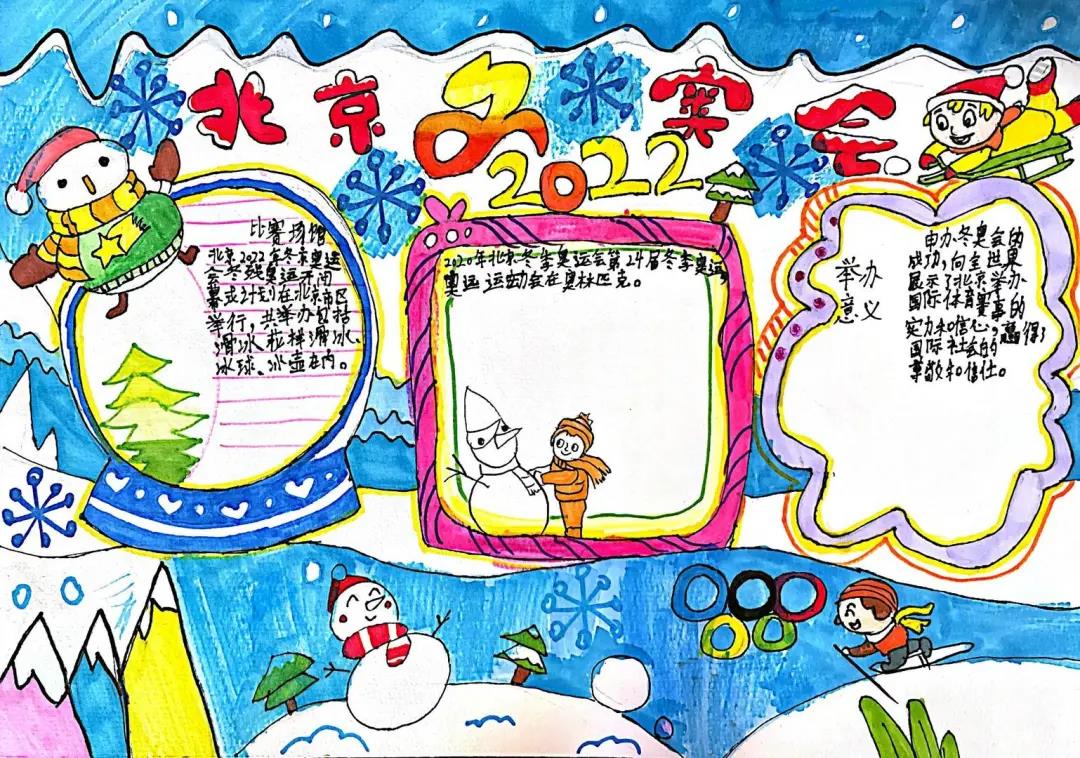 北京冬奥会
2022
比赛场馆
北京2022年冬季奥运
会冬残奥运开闭
幕式计划在北京市区
举行，共举办包括
滑冰、花样滑冰、
冰球、冰壶在内。
2020年北京冬季奥运会第24届冬季奥运，
奥运运动会在奥林匹克。
举办
意义
申办冬奥会的
成功，向全世界
展示了北京举办
国际体育赛事的
实力和信心，赢得了
国际社会的
尊敬和信任。